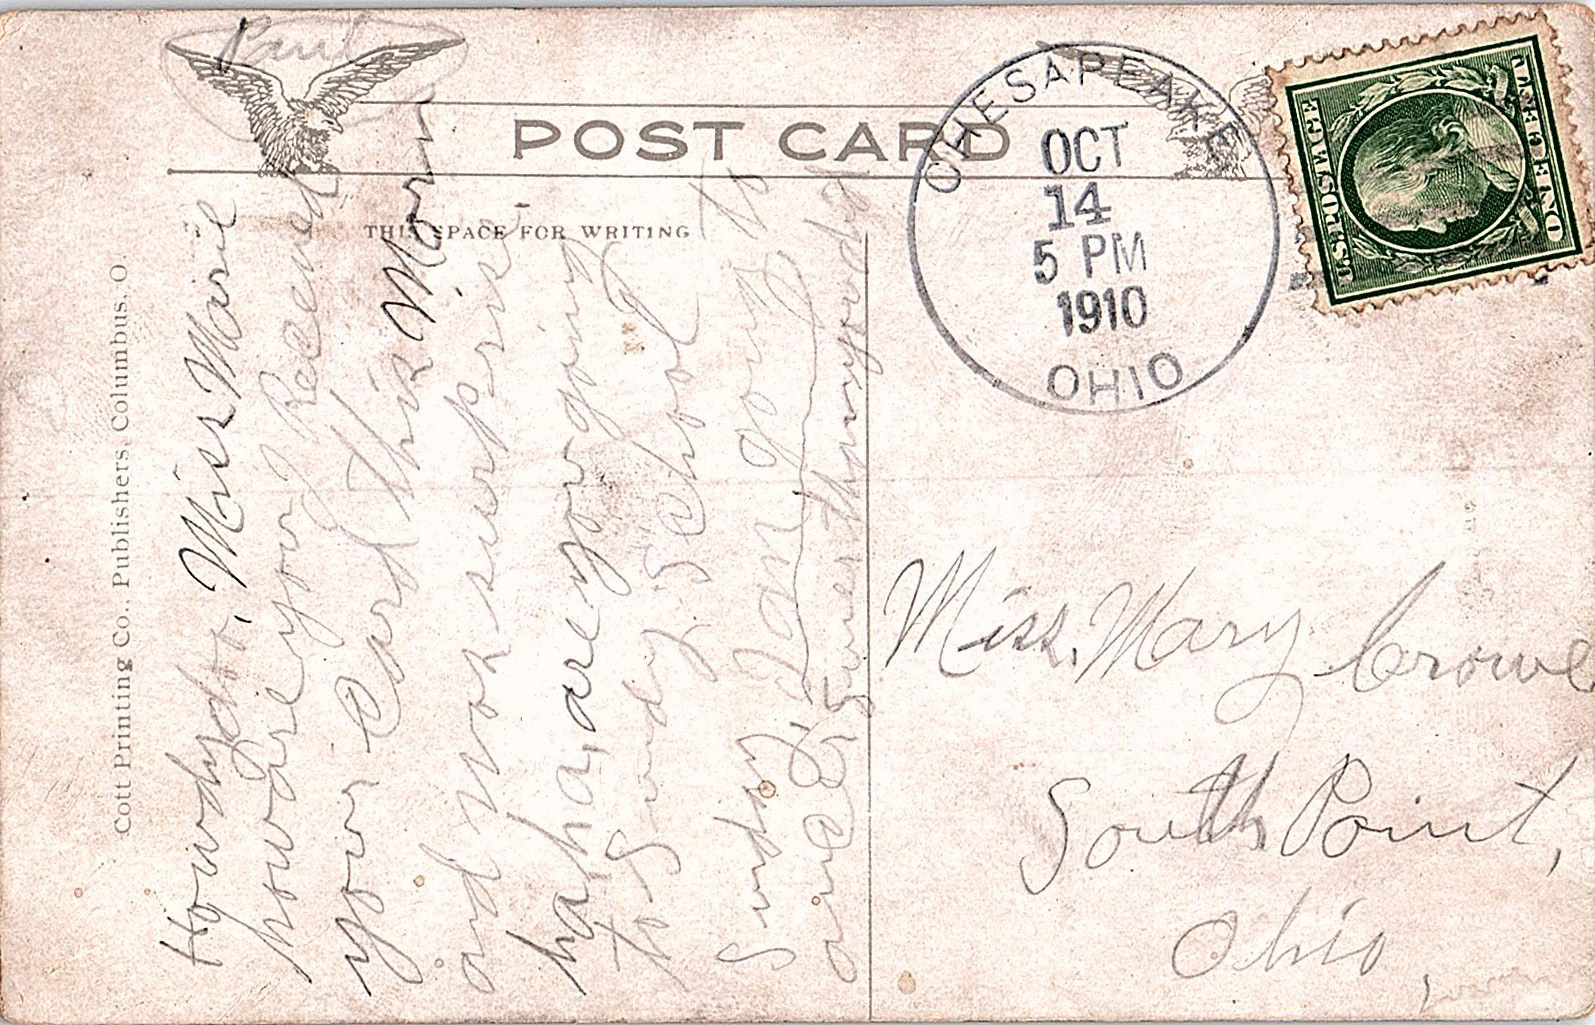 Paul
POST CARD
THIS SPACE FOR WRITING
Cott Printing Co., Publishers, Columbus, O
CHESAPEAKE
OCT
14
5 PM
1910
OHIO
U.S. POSTAGE
ONE CENT
Howdydo, Miss Marie
how are you I Received
your Card this Morn
and was surprise
ha, ha, are you going
to Sunday School
Sunday, I am going to
answer
Miss. Mary Crowe
South Point,
Ohio,